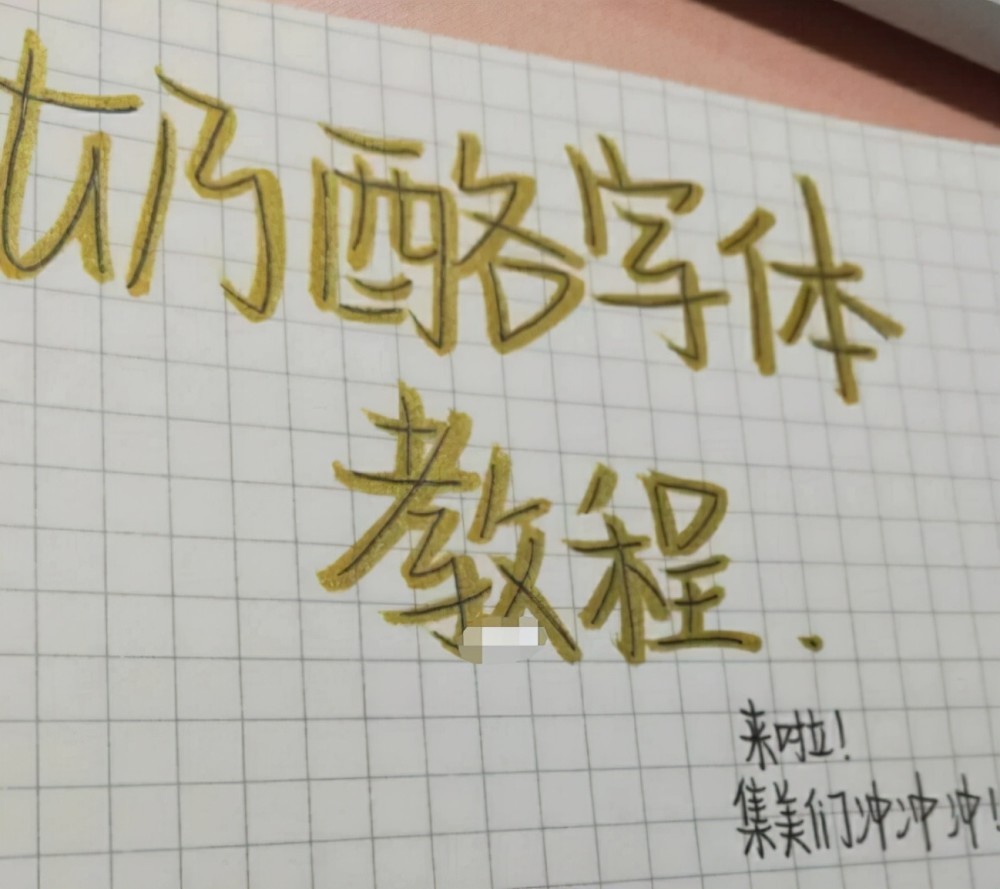 奶酪字体
教程.
来啦！
集美们冲冲冲！